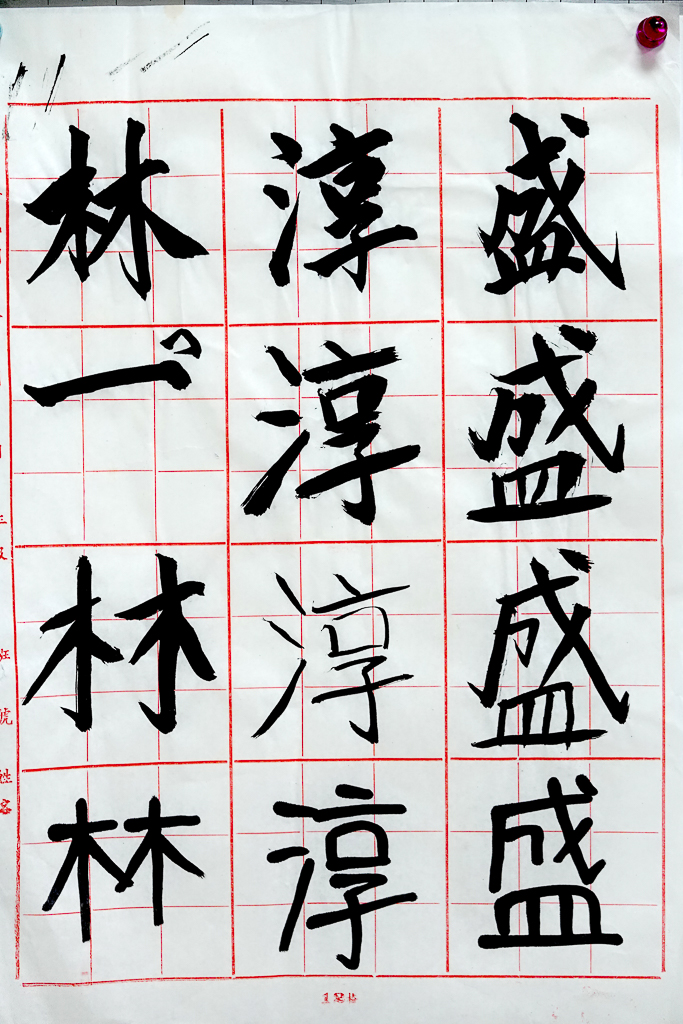 盛盛盛盛
淳淳淳淳
林一林林
班 號 姓名